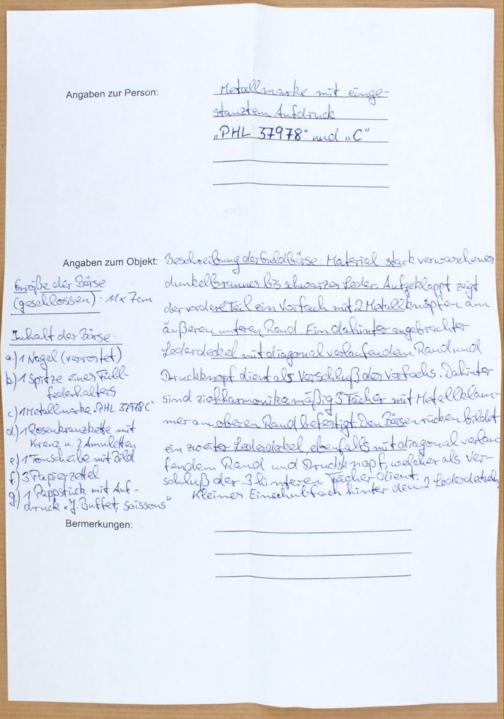 Angaben zur Person:
Metallmarke mit einge-
stanztem Aufdruck
„PHL 37978" und „C"
Angaben zum Objekt:
Beschreibung der Geldbörse: Material stark verwaschenes
dunkelbraunes bis schwarzes Leder. Aufgeklappt zeigt
der vordere Teil ein Vorfach mit 2 Metallknöpfen am
äußeren unteren Rand. Ein dahinter angebrachter
Lederdeckel mit diagonal verlaufendem Rand und
Druckknopf dient als Verschluß des Vorfachs. Dahinter
sind ziehharmonikamäßig 3 Fächer mit Metallklam-
mer am oberen Rand befestigt. Den Börsenrücken bildet
ein zweiter Lederdeckel, ebenfalls mit diagonal verlau-
fendem Rand und Druckknopf, welcher als Ver-
schluß der 3 hinteren Fächer dient.
Kleiner Einschubfach hinter dem 2 Lederdeckel
Größe der Börse
(geschlossen): 11 x 7cm
Inhalt der Börse:
a) 1 Nagel (verrostet)
b) 1 Spitze eines Füll-
federhalters
c) 1 Metallmarke „PHL 37978 C"
d) 1 Rosenkranzkette mit
Kreuz u. 2 Amuletten
e) 1 Tonscheibe mit Bild
f) 3 Papierzettel
g) 1 Pappstück mit Auf-
druck „J. Buffet, Soissons"
Bemerkungen: